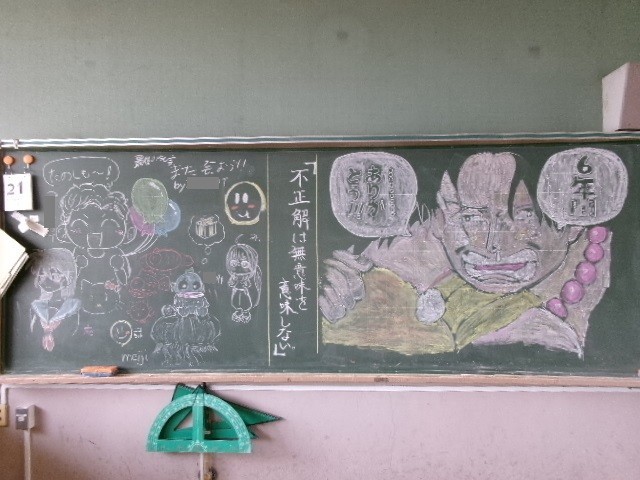 21
たのしも〜!
また会よう!!
by
meiji
「不正解は無意味を
意味しない」
ありが
とう!!
6年間